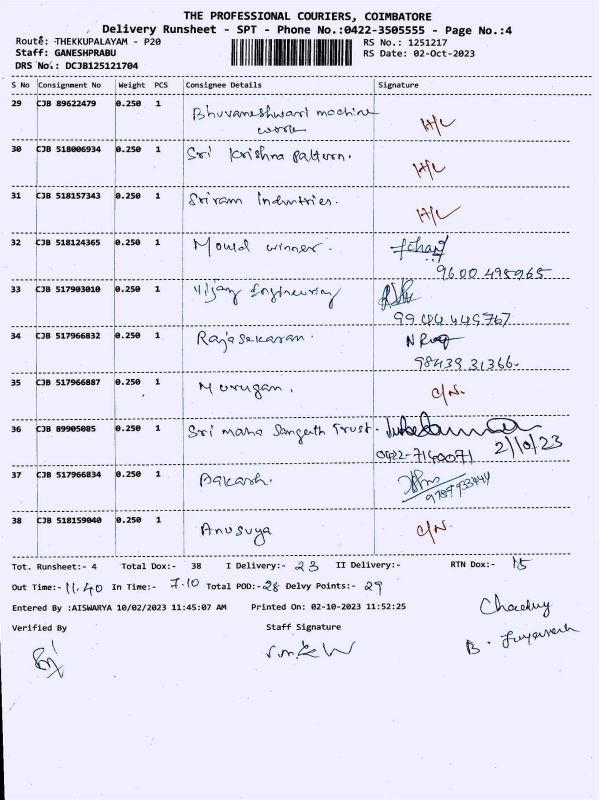 THE PROFESSIONAL COURIERS, COIMBATORE
Delivery Runsheet - SPT - Phone No.:0422-3505555 - Page No.:4
Route: -THEKKUPALAYAM - P20 RS No.: 1251217
Staff: GANESHPRABU RS Date: 02-Oct-2023
DRS No.: DCJB125121704
S No Consignment No Weight PCS Consignee Details Signature
29 CJB 89622479 0.250 1 Bhuvaneshwari machine
work H/L
30 CJB 518006934 0.250 1 Sri Krishna Pattern. H/L
31 CJB 518157343 0.250 1 Sriram Industries. H/L
32 CJB 518124365 0.250 1 Mould winner.
9600 495965
33 CJB 517903010 0.250 1 Vijay Engineering
99444 445767
34 CJB 517966832 0.250 1 Rajasekaran.
98439 31366.
35 CJB 517966887 0.250 1 Murugan. C/N.
36 CJB 89905085 0.250 1 Sri maha Sangeeth Trust.
0422-7140071 2/10/23
37 CJB 517966834 0.250 1 Aakash.
38 CJB 518159040 0.250 1 Anusuya C/N.
Tot. Runsheet:- 4 Total Dox:- 38 I Delivery:- 23 II Delivery:- RTN Dox:- 15
Out Time:- 11.40 In Time:- 7.10 Total POD:- 28 Delvy Points:- 29
Entered By :AISWARYA 10/02/2023 11:45:07 AM Printed On: 02-10-2023 11:52:25
Verified By Staff Signature